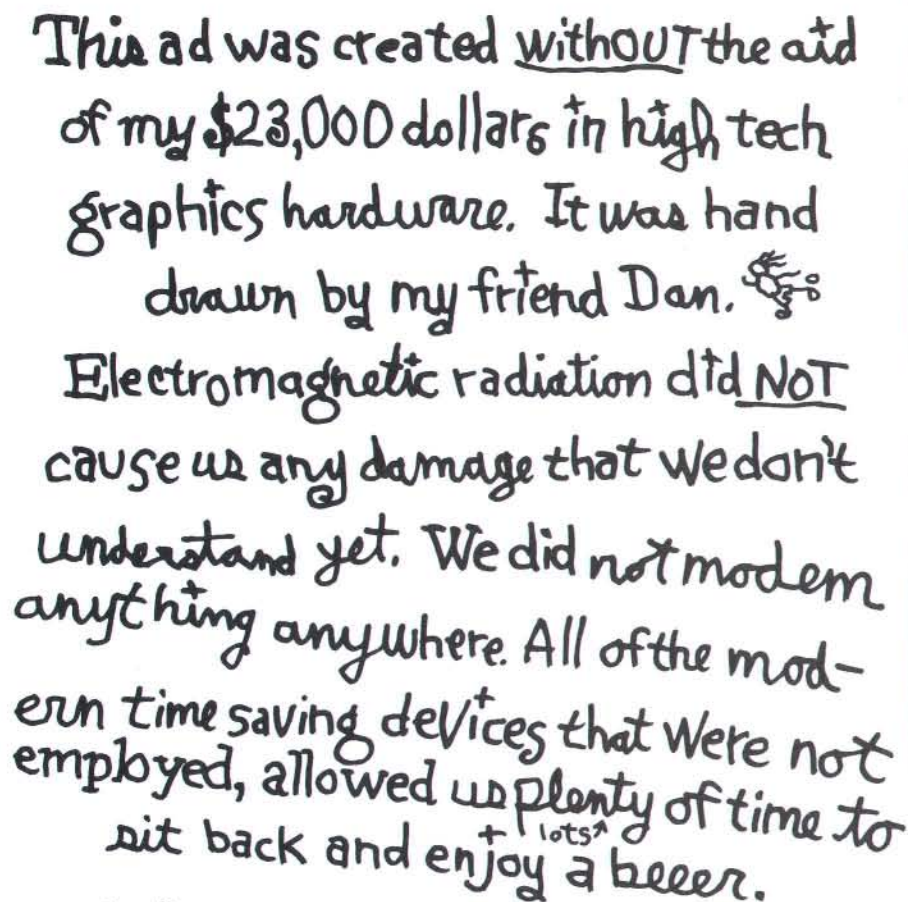 This ad was created withOUT the aid
of my $23,000 dollars in high tech
graphics hardware. It was hand
drawn by my friend Dan.
Electromagnetic radiation did NOT
cause us any damage that we don't
understand yet. We did not modem
anything anywhere. All of the mod-
ern time saving devices that were not
employed, allowed us plenty of time to
lots
sit back and enjoy a beeer.